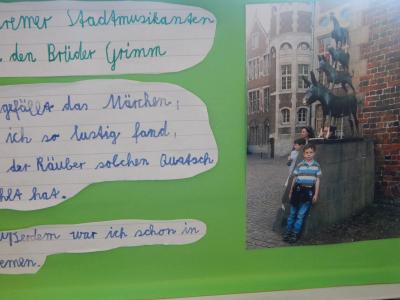 remer Stadtmusikanten
den Brüder Grimm
gefällt das Märchen,
ich so lustig fand,
der Räuber solchen Quatsch
hlt hat.
ußerdem war ich schon in
emen.